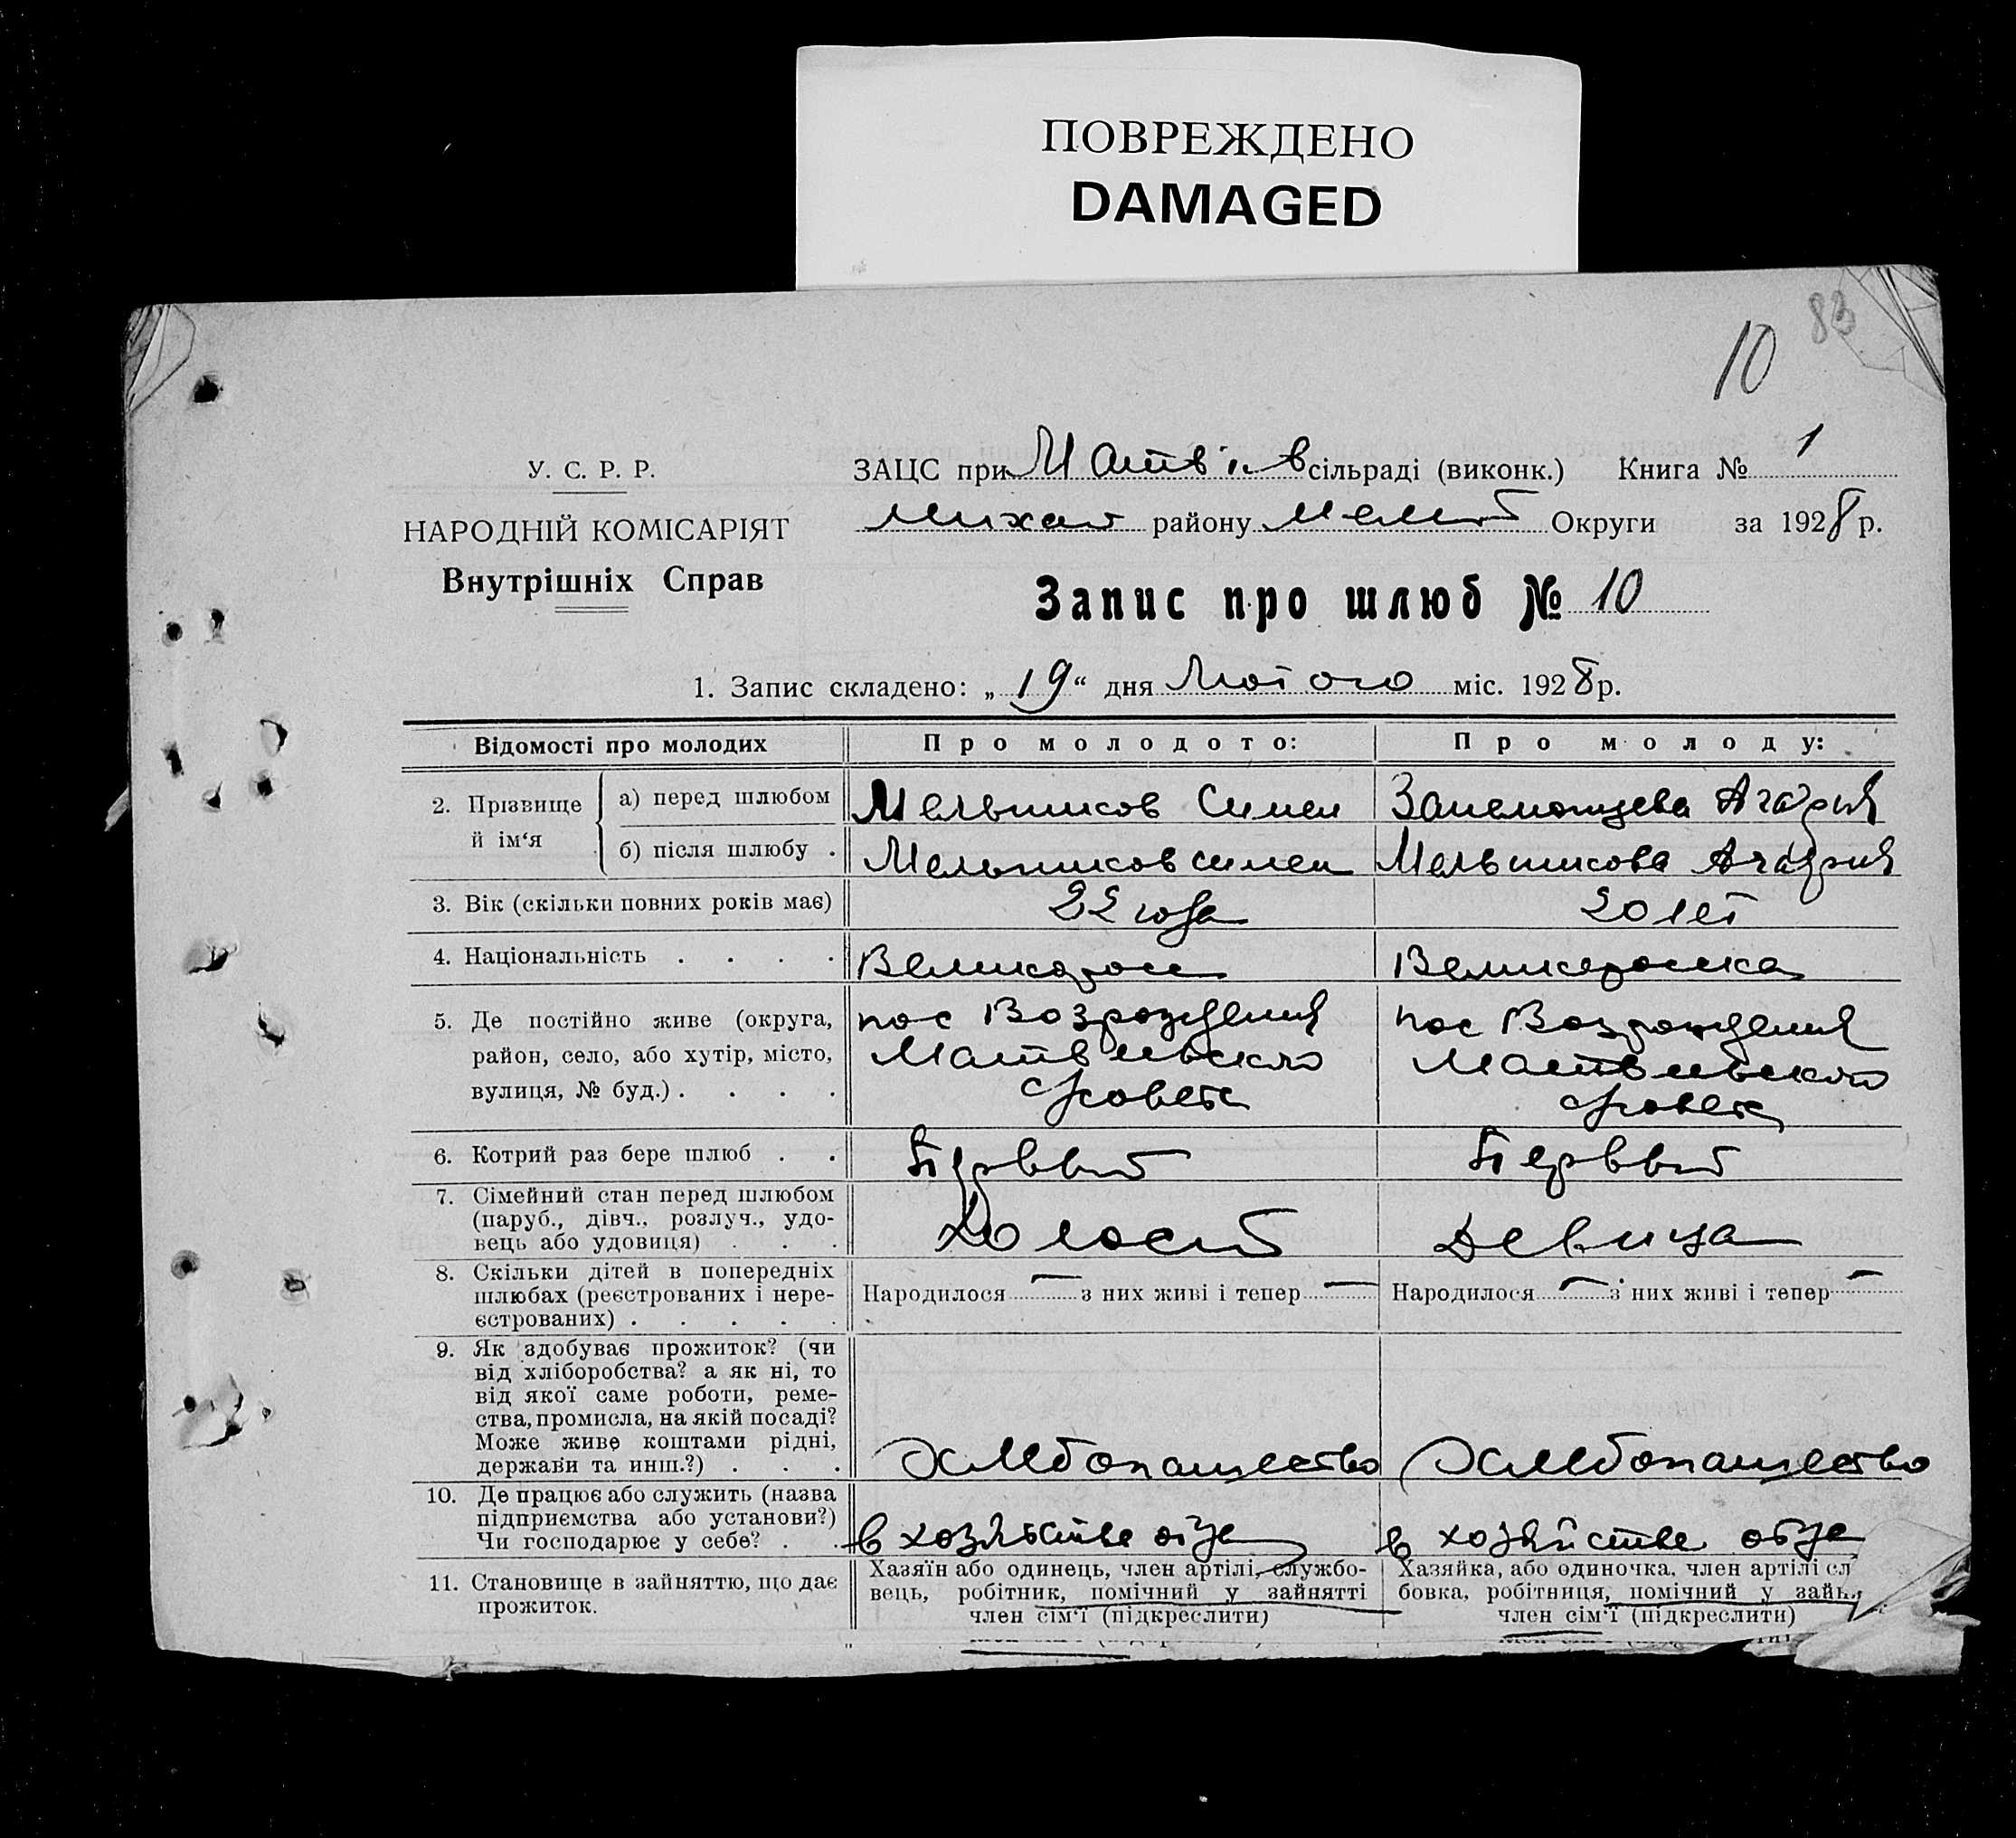 ПОВРЕЖДЕНО
DAMAGED
83
10
У. С. Р. Р.
НАРОДНІЙ КОМІСАРІЯТ
Внутрішніх Справ
ЗАЦС при Матвіїв сільраді (виконк.) Книга № 1
Михай району Меліт Округи за 1928 р.
Запис про шлюб № 10
1. Запис складено: „19“ дня Лютого міс. 1928 р.
Відомості про молодих
Про молодого:
Про молоду:
2. Прізвище й ім‘я
а) перед шлюбом
Мельников Симен
Агафия
б) після шлюбу .
Мельников Симен
Мельникова Агафия
3. Вік (скільки повних років має)
22 года
20 лет
4. Національність . . . .
Великорос
Великороска
5. Де постійно живе (округа,
район, село, або хутір, місто,
вулиця, № буд.) . . . .
пос Возрождения
Матвеевского
с/совета
пос Возрождения
Матвеевского
с/совета
6. Котрий раз бере шлюб . .
Первый
Первый
7. Сімейний стан перед шлюбом
(паруб., дівч., розлуч., удо-
вець або удовиця) . . .
Холост
Девица
8. Скільки дітей в попередніх
шлюбах (реєстрованих і нере-
єстрованих) . . . . .
Народилося — з них живі і тепер —
Народилося — з них живі і тепер —
9. Як здобуває прожиток? (чи
від хліборобства? а як ні, то
від якої саме роботи, реме-
ства, промисла, на якій посаді?
Може живе коштами рідні,
держави та инш.?) . . .
Хлебопашество
Хлебопашество
10. Де працює або служить (назва
підприємства або установи?)
Чи господарює у себе? . .
в хозяйстве отца
в хозяйстве отца
11. Становище в зайняттю, що дає
прожиток.
Хазяїн або одинець, член артілі, службо-
вець, робітник, помічний у зайнятті
член сім‘ї (підкреслити)
Хазяйка, або одиночка, член артілі сл
бовка, робітниця, помічний у зайн
член сім‘ї (підкреслити)